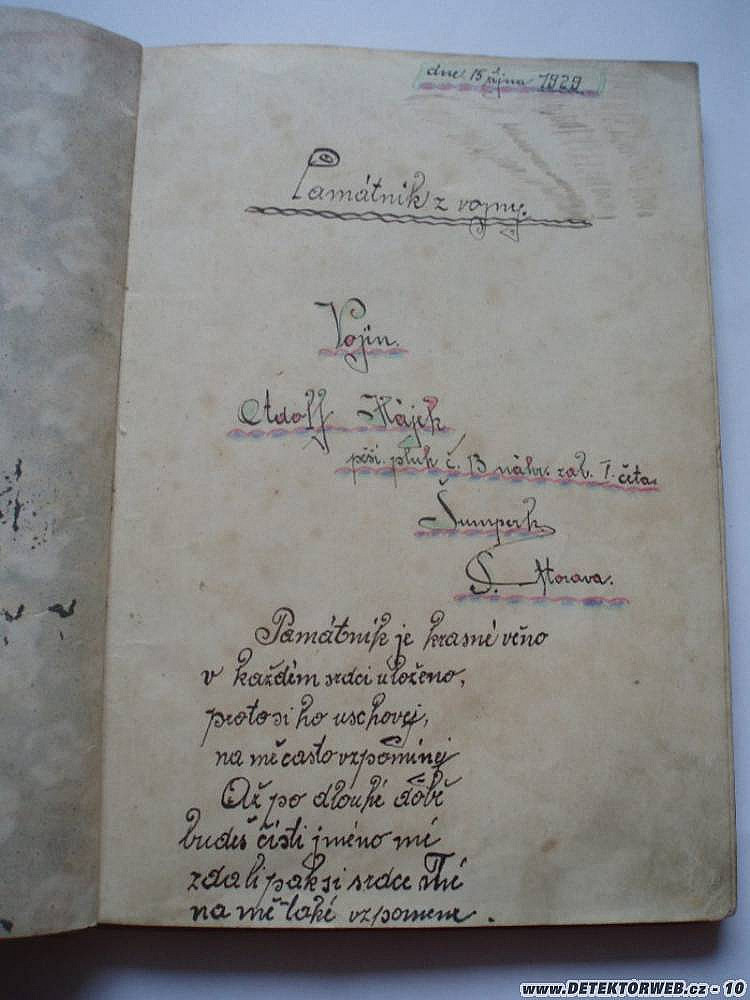 dne 15 října 1929
Památnik z vojny.
Vojín.
Adolf Hájek
pěší. pluk č. 13 náhr. zab. I. četa.
Šumperk
S. Morava.
Památnik je krasné věno
v každém srdci uloženo,
proto si ho uschovej,
na mě často vzpomínej
Až po dlouhé době
budeš čísti jméno mé
zdali pak si srdce Tvé
na mě také vzpomene.
www.DETEKTORWEB.cz - 10